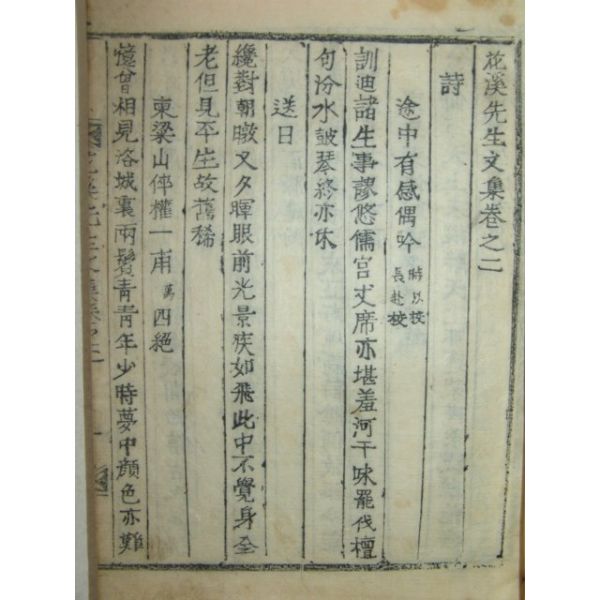 花溪先生文集卷之二
詩
途中有感偶吟 時以校長赴校
訓迪諸生事謬悠儒宫丈席亦堪羞河干咏罷伐檀
句汾水皷琴終亦休
送日
纔對朝暾又夕暉眼前光景疾如飛此中不覺身全
老但見平生故舊稀
東梁山倅權一甫 萬 四絕
憶曾相見洛城裏兩鬂青青年少時夢中顔色亦難